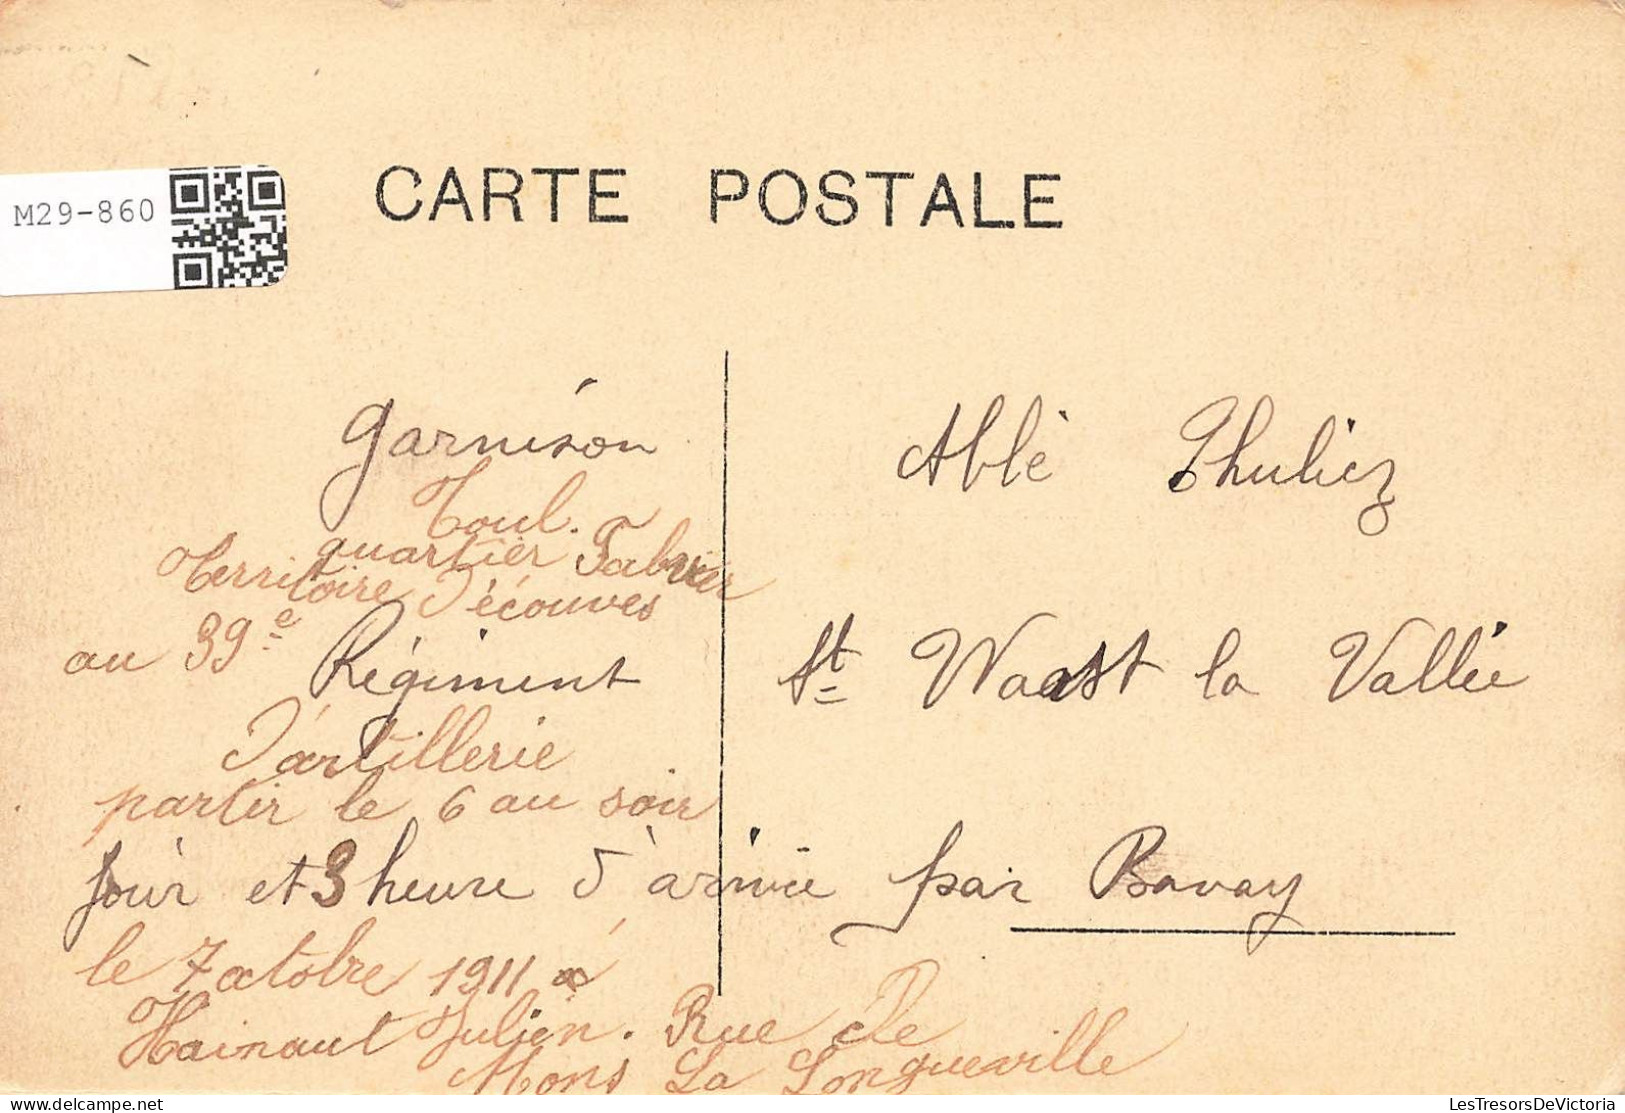 M29-860
CARTE POSTALE
Garnison
Toul.
quartier Fabvier
Territoire d'écouves
au 39e Régiment
d'artillerie
partir le 6 au soir
jour et 3 heure d'arivie
le 7 octobre 1911 à
Hainaut Julien. Rue de
Mons La Longueville
Abbé Thuliez
St Waast la Vallée
par Bavay
LesTresorsDeVictoria